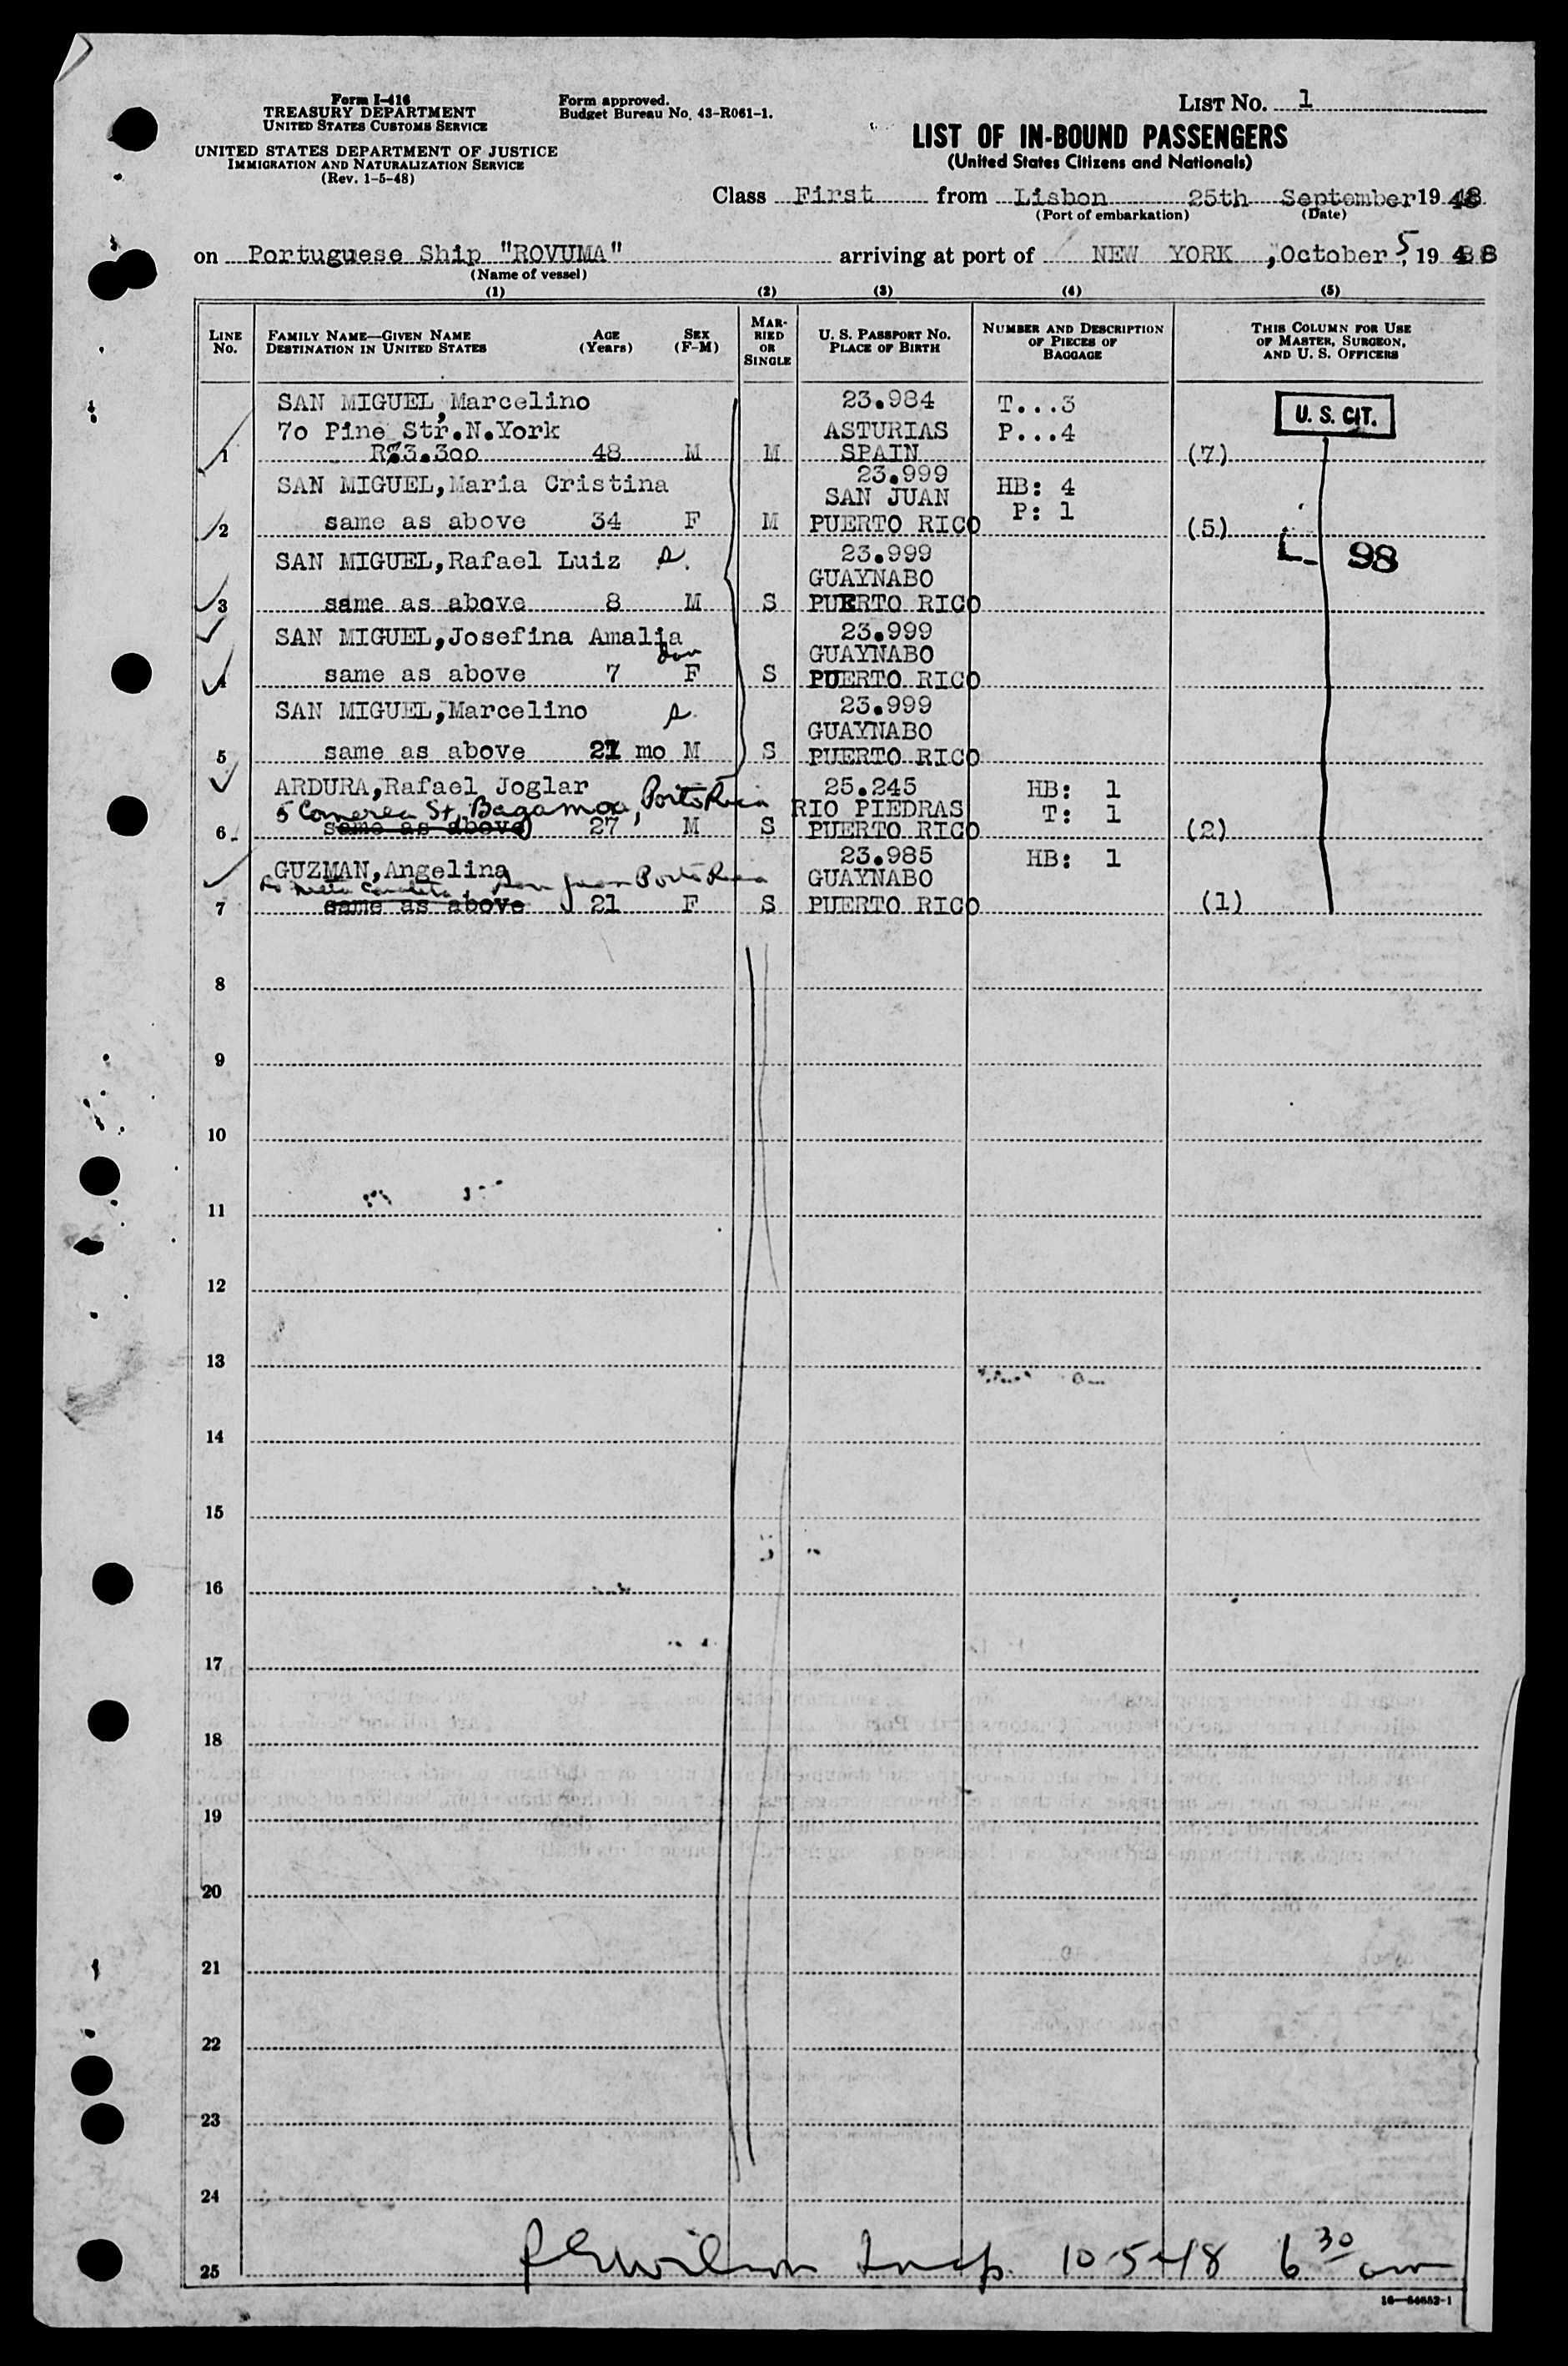 Form I-416
TREASURY DEPARTMENT
UNITED STATES CUSTOMS SERVICE
UNITED STATES DEPARTMENT OF JUSTICE
IMMIGRATION AND NATURALIZATION SERVICE
(Rev. 1-5-48)
Form approved.
Budget Bureau No. 43-R061-1.
LIST NO. 1
LIST OF IN-BOUND PASSENGERS
(United States Citizens and Nationals)
Class First from Lisbon 25th September 1948
(Port of embarkation) (Date)
on Portuguese Ship "ROVUMA" arriving at port of NEW YORK ,October 5, 1948
(Name of vessel)
(1) (2) (3) (4) (5)
LINE NO. FAMILY NAME—GIVEN NAME DESTINATION IN UNITED STATES AGE (Years) SEX (F-M) MARRIED OR SINGLE U. S. PASSPORT NO. PLACE OF BIRTH NUMBER AND DESCRIPTION OF PIECES OF BAGGAGE THIS COLUMN FOR USE OF MASTER, SURGEON, AND U. S. OFFICERS
SAN MIGUEL,Marcelino 23.984 T...3 U. S. CIT.
70 Pine Str.N.York ASTURIAS P...4
1 48 M M SPAIN (7)
SAN MIGUEL,Maria Cristina 23.999 HB: 4
SAN JUAN P: 1
2 same as above 34 F M PUERTO RICO (5)
SAN MIGUEL,Rafael Luiz s. 23.999 L- 98
GUAYNABO
3 same as above 8 M S PUERTO RICO
SAN MIGUEL,Josefina Amalia 23.999
dau GUAYNABO
4 same as above 7 F S PUERTO RICO
SAN MIGUEL,Marcelino s. 23.999
GUAYNABO
5 same as above 21 mo M S PUERTO RICO
ARDURA,Rafael Joglar 25.245 HB: 1
5 Comerea St, Bagamoa, Porto Rica RIO PIEDRAS T: 1
6 same as above 27 M S PUERTO RICO (2)
GUZMAN,Angelina 23.985 HB: 1
San Juan Porto Rica GUAYNABO
7 same as above 21 F S PUERTO RICO (1)
8
9
10
11
12
13
14
15
16
17
18
19
20
21
22
23
24
25 Wilson Insp. 10-5-48 6 30 am
16—54652-1